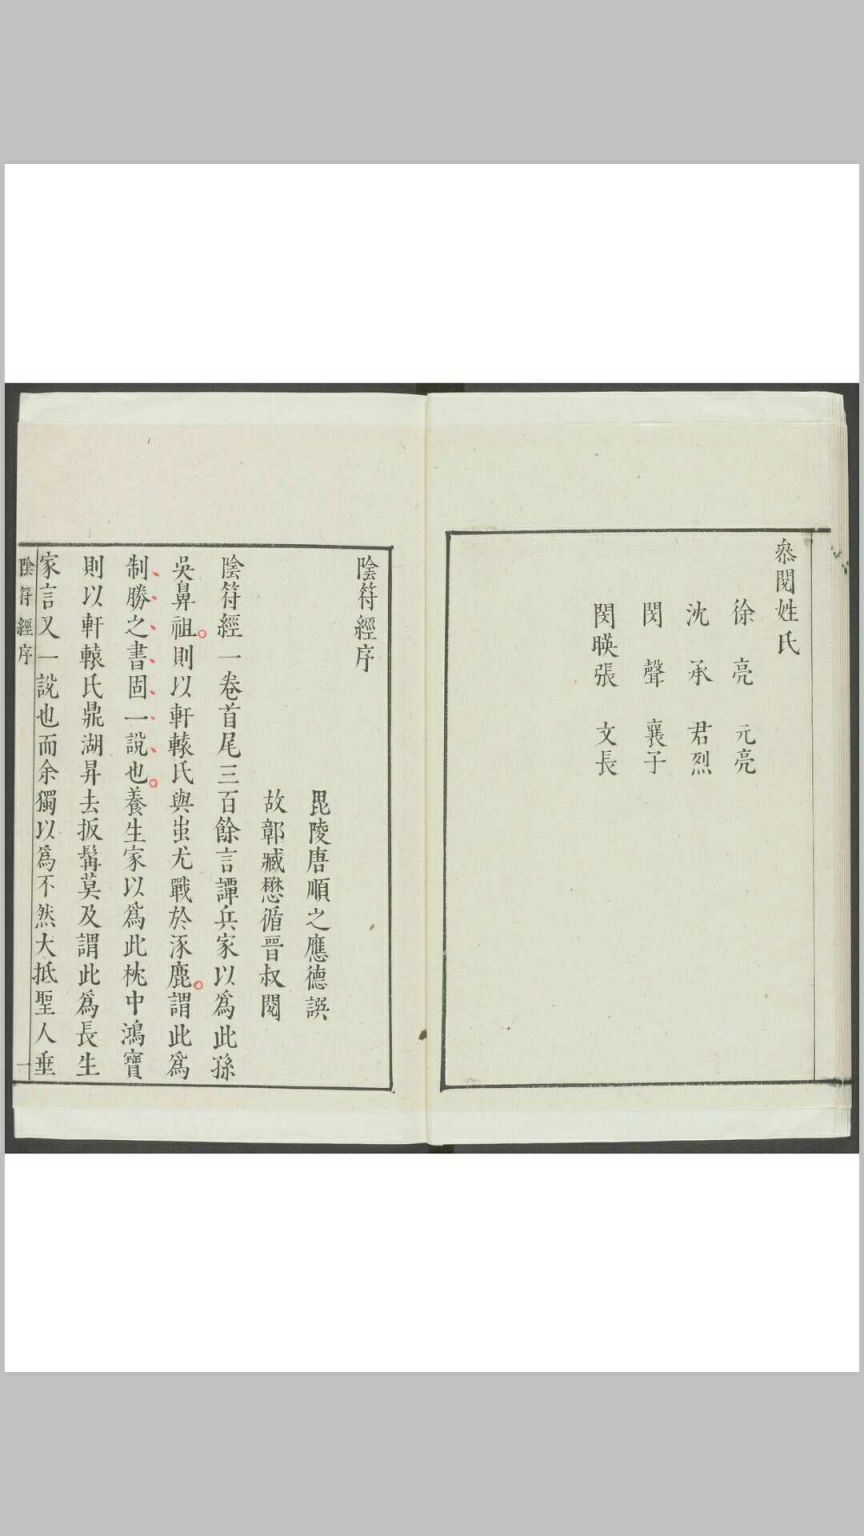 參閱姓氏
徐亮元亮
沈承君烈
閔聲襄子
閔暎張文長
陰符經序
毘陵唐順之應德譔
故鄣臧懋循晉叔閱
陰符經一卷首尾三百餘言譚兵家以爲此孫
吳鼻祖則以軒轅氏與蚩尤戰於涿鹿謂此爲
制勝之書固一說也養生家以爲此枕中鴻寶
則以軒轅氏鼎湖昇去扳髯莫及謂此爲長生
家言又一說也而余獨以爲不然大抵聖人垂
陰符經序 一